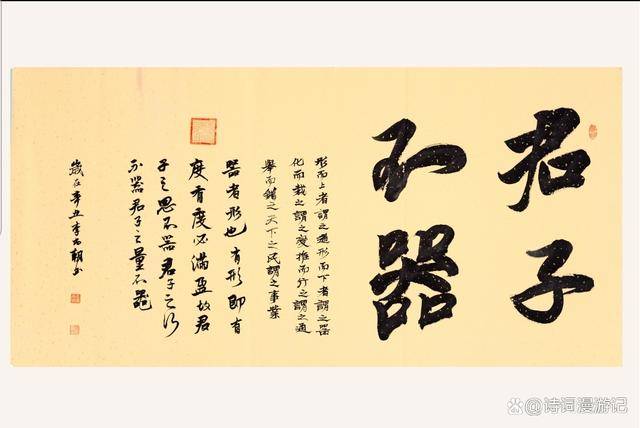 君子
不器
形而上者謂之道形而下者謂之器
化而裁之謂之變推而行之謂之通
舉而錯之天下之民謂之事業
器者形也有形即有
度有度必滿盈故君
子之思不器君子之行
不器君子之量不器
歲在辛丑李
诗词漫游记